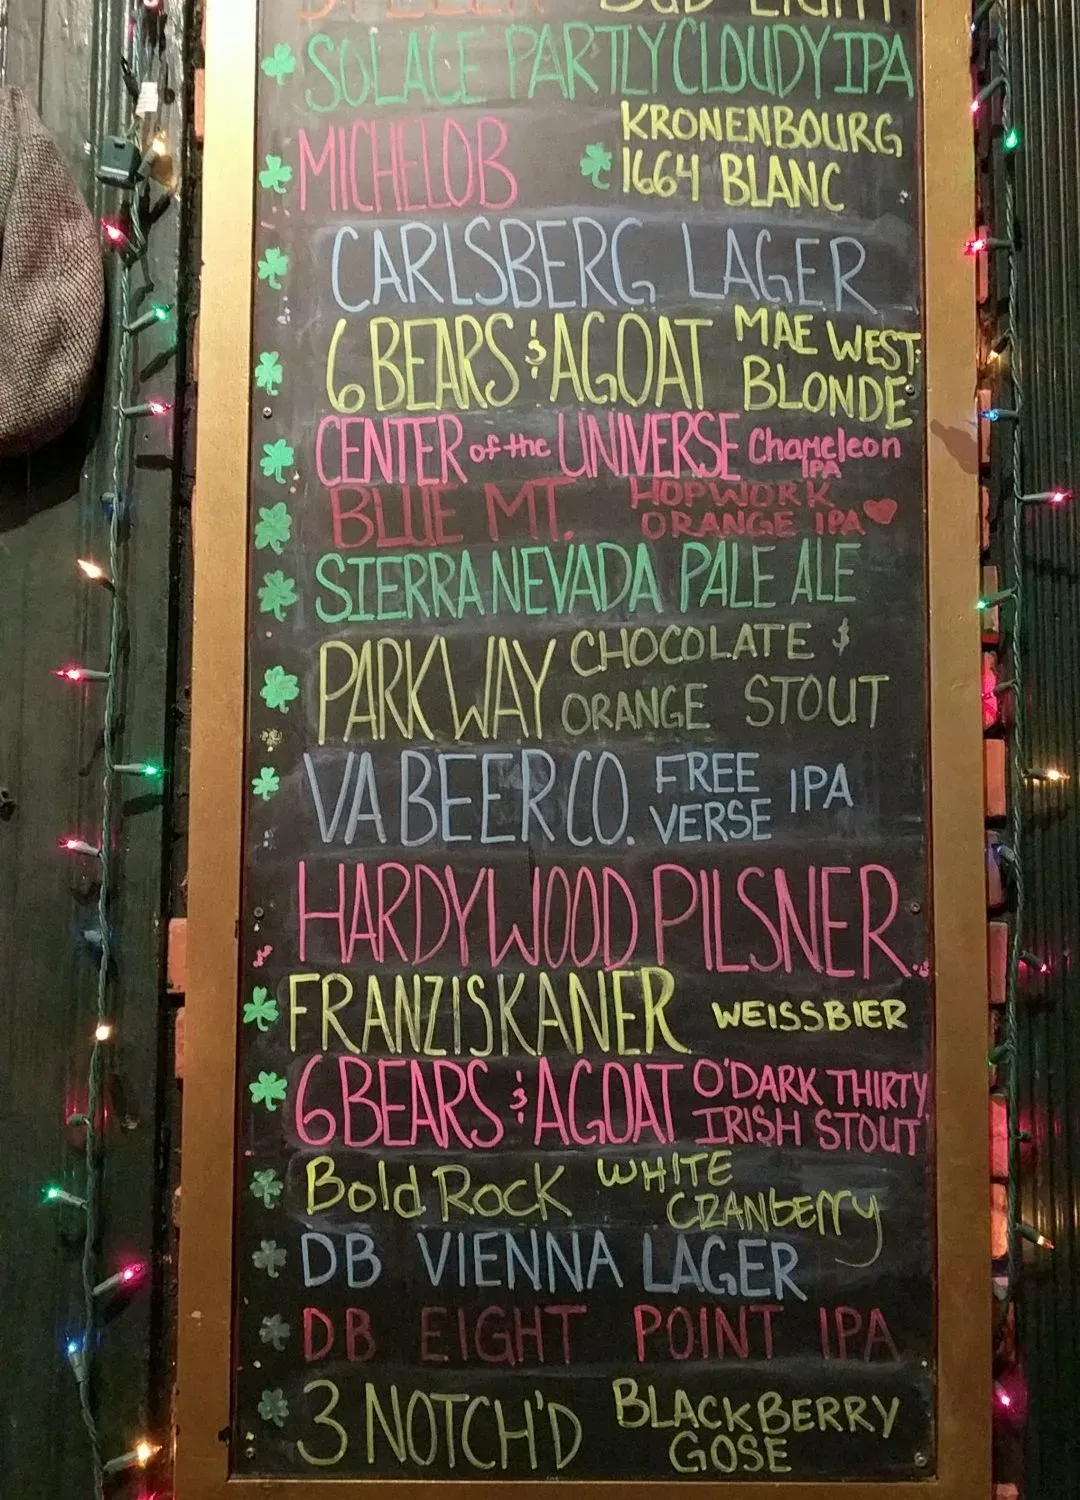 SOLACE PARTLY CLOUDY IPA
MICHELOB KRONENBOURG
1664 BLANC
CARLSBERG LAGER
6 BEARS & A GOAT MAE WEST
BLONDE
CENTER of the UNIVERSE Chameleon
IPA
BLUE MT. HOPWORK
ORANGE IPA
SIERRA NEVADA PALE ALE
PARKWAY CHOCOLATE &
ORANGE STOUT
VA BEER CO. FREE
VERSE IPA
HARDYWOOD PILSNER
FRANZISKANER WEISSBIER
6 BEARS & A GOAT O'DARK THIRTY
IRISH STOUT
Bold Rock WHITE
CRANBERRY
DB VIENNA LAGER
DB EIGHT POINT IPA
3 NOTCH'D BLACKBERRY
GOSE